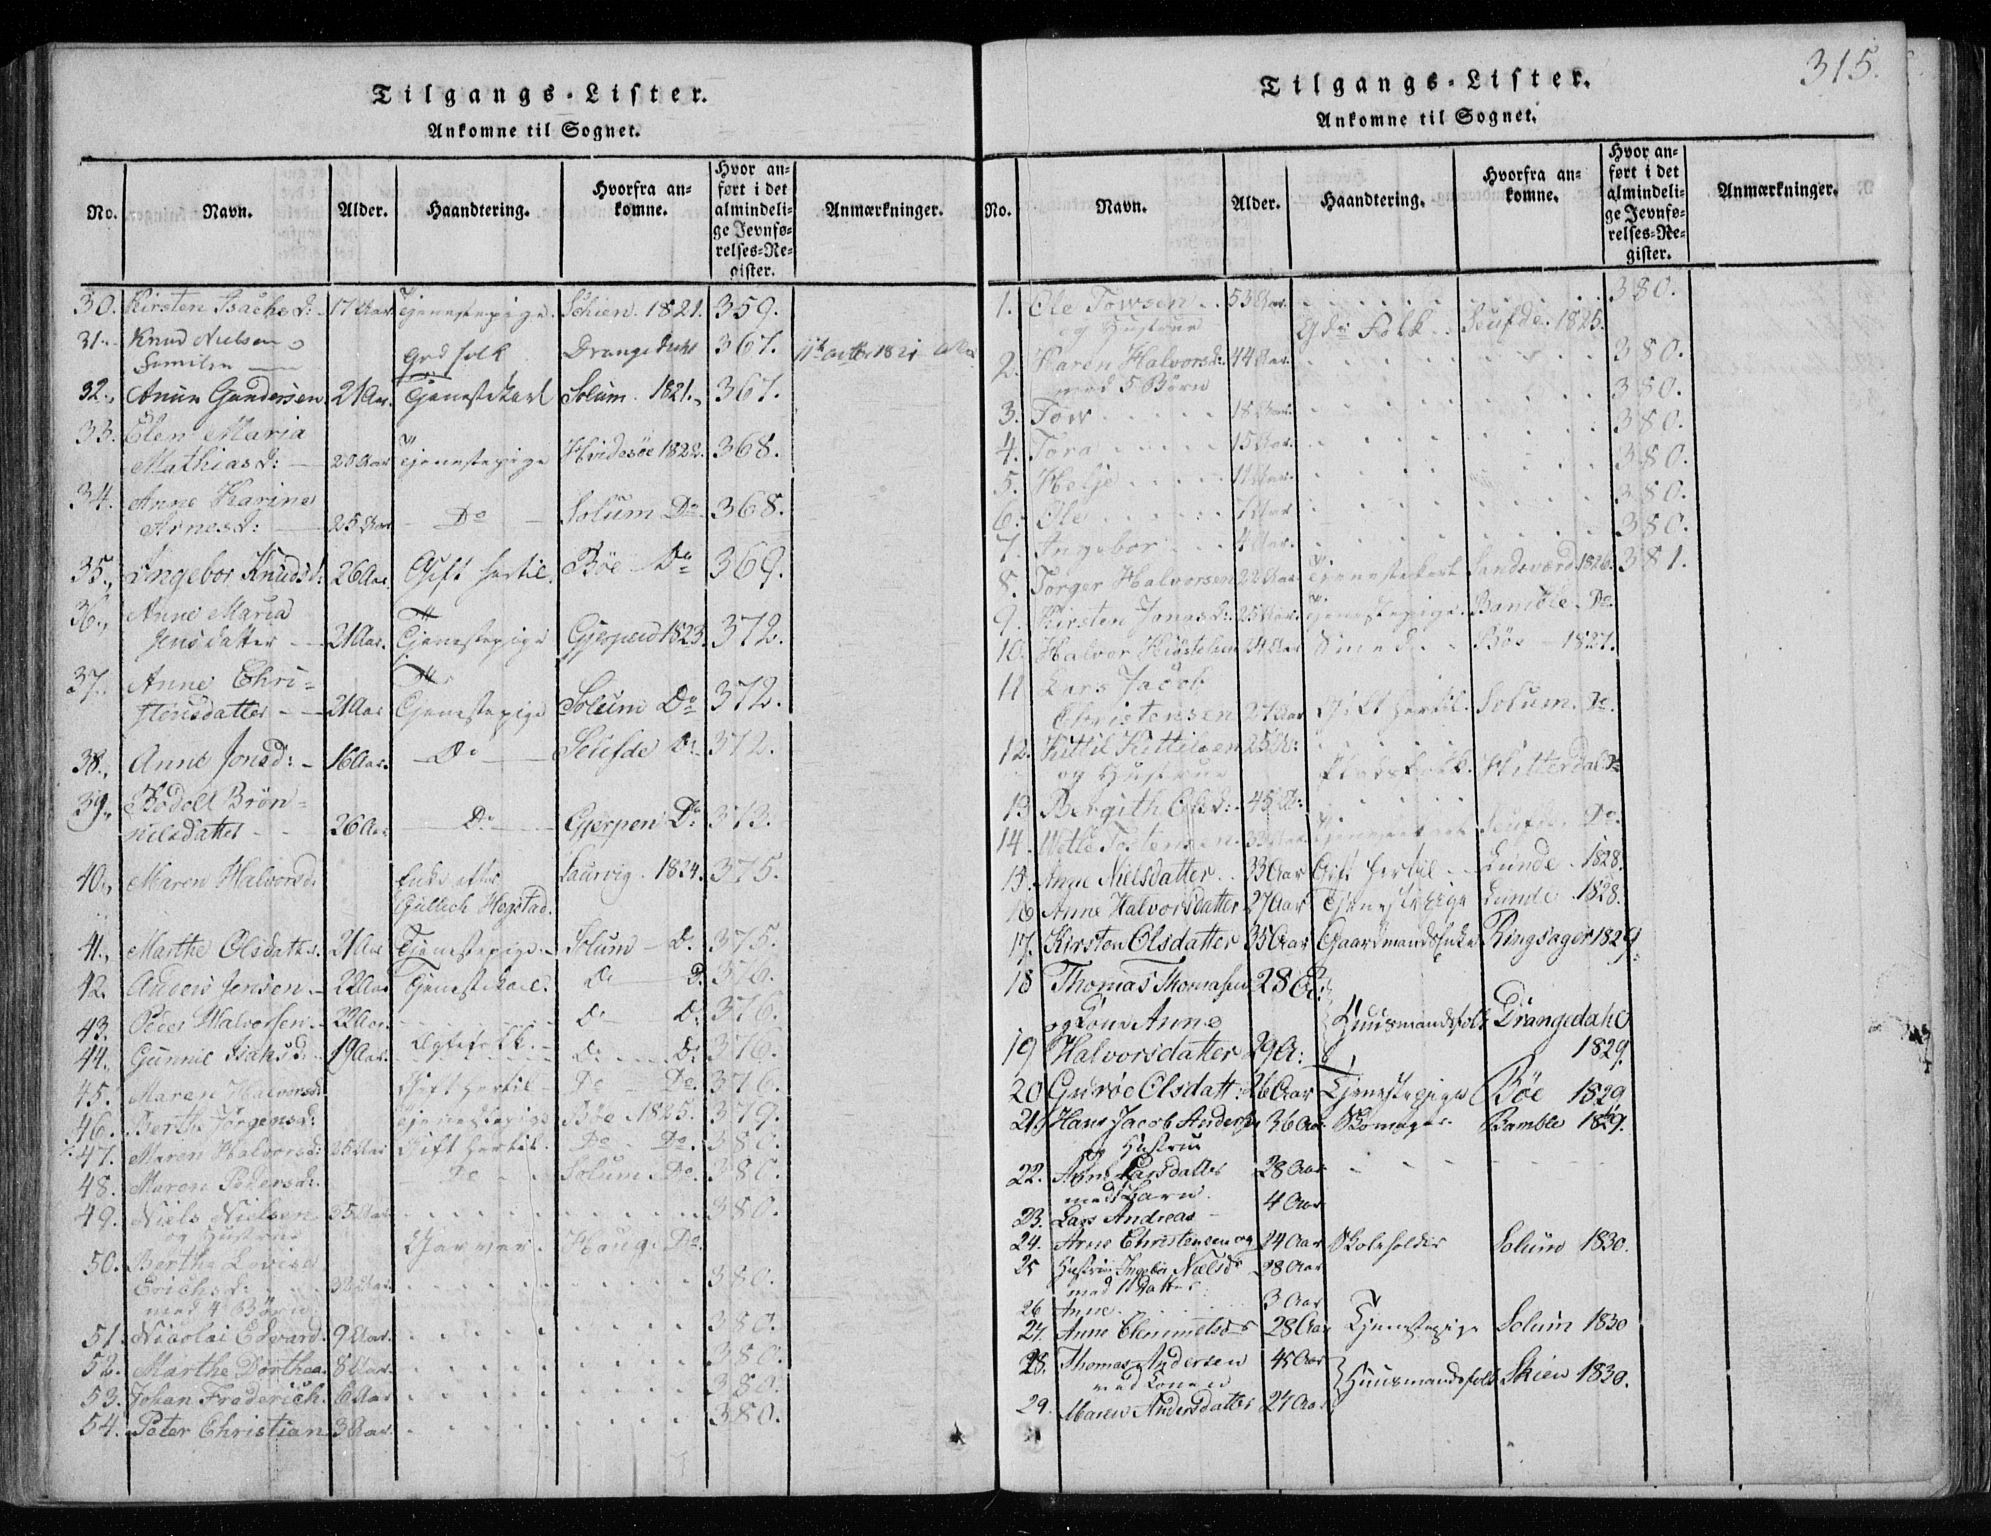 315.
Tilgangs-Lister.
Ankomne til Sognet.
No. Navn. Alder. Haandtering. Hvorfra an-komne. Hvor an-ført i det almindeli-ge Jevnfø-relses-Re-gister. Anmærkninger.
30. Kirsten Isachsd: 17 Aar Tjenestepige. Schien. 1821. 359.
31. Knud Nielsen
Familie Grd folk Drangedahl 367.
32. Anun Gundersen. 21 Aar. Tjenestekarl Solum. 1821. 367.
33. Elen Maria
Mathiasd: 20 Aar Tjenestepige Hvidesøe 1822. 368.
34. Anne Karine
Arnesd: 25 Aar Do Solum Do 368.
35. Ingebor Knudsd: 26 Aar Gift hertil. Bøe Do 369.
36. Anne Maria
Jensdatter 21 Aar. Tjenestepige Gjerpen 1823. 372.
37. Anne Chri-
stensdatter 21 Aar Tjenestepige Solum Do 372.
38. Anne Jonsd: 16 Aar. Do Seufde Do 372.
39. Bodell Brøn-
nielsdatter 26 Aar Do Gjerpen Do 373.
40. Maren Halvorsd. Enke efter Laurvig. 1824. 375.
Gullich Hogstad.
41. Marthe Olsdatter. 21 Aar Tjenestepige Solum D. 375.
42. Anders Jensen. 22 Aar Tjenestekarl. Do D. 376.
43. Peder Halvorsen. 22 Aar. Do D: 376.
44. Gunnil Isaksd: 19 Aar. Egtefolk. D: D: 376.
45. Maren Halvorsd: Gift hertil Do Do. 376.
46. Berthe Jørgensd: Tjenestepige Bøe 1825. 379.
47. Maren Halvorsd: 25 Aar Gift hertil. Do Do. 380.
48. Maren Pedersd: Do Solum Do. 380.
49. Niels Nielsen 35 Aar 380.
og Hustrue Garver. Haug. Do.
50. Berthe Lovisa
Erichsd: 32 Aar. 380.
med 4 Børn
51. Nicolai Edvard. 9 Aar. 380.
52. Marthe Dorthea. 8 Aar. 380.
53. Johan Fraderich. 6 Aar 380.
54. Peter Christian 3 Aar. 380.
Tilgangs-Lister.
Ankomne til Sognet.
No. Navn. Alder. Haandtering. Hvorfra an-komne. Hvor an-ført i det almindeli-ge Jevnfø-relses-Re-gister. Anmærkninger.
1. Ole Towsen 53 Aar. 380.
og Hustrue Gdr Folk Seufde. 1825.
2. Karen Halvorsd: 44 Aar. 380.
med 5 Børn
3. Tow 18 Aar. 380.
4. Tora 15 Aar. 380.
5. Helje 11 Aar. 380.
6. Ole 7 Aar 380.
7. Ingebor 4 Aar. 380.
8. Torger Halvorsen 22 Aar Tjenestekarl Sandsværd 1826. 381.
9. Kirsten Jonasd: 25 Aar. Tjenestepige. Bamble. Do.
10. Halvor 24 Aar Smed. Bøe 1827.
11 Lars Jacob
Christensen 27 Aar Gift hertil. Solum. Do.
12. Kittil Kittilsen 25 Aar:
og Hustrue Pladsfolk. Hitterdal Do
13 Bergith Olsd: 45 Aar:
14. Tostensen. 33 Aar Tjenestekarl Seufde Do.
15. Anne Nielsdatter 33 Aar Gift hertil Lunde 1828.
16 Anne Halvorsdatter 27 Aar Tjenestepige Lunde 1828.
17. Kirsten Olsdatter 35 Aar Gaardmandsenke Ringsager 1829.
18 Thomas Thomassen 28 A:
og Kone Anne Huusmandsfolk Drangedahl
19 Halvorsdatter 29 A: 1829.
20 Guroe Olsdatt: 26 Aar Tjenestepige Bøe 1829
21. Hans Jacob Anders: 36 Aar Skomager Bamble 1829.
og Hustrue
22. Anne Larsdatter 28 Aar
med Barn. 4 Aar
23. Lars Andreas
24. Arne Christensen og 24 Aar Skoleholder Solum 1830.
25 Hustrue Ingebor Nielsdr 28 Aar
med 1 Datter
26 Anne 3 Aar
27. Anne Clemmetsdr 28 Aar Tjenestepige Solum 1830
28. Thomas Andersen 45 Aar
med Konen Huusmandsfolk Skien 1830.
29. Maren Andersdatter 27 Aar